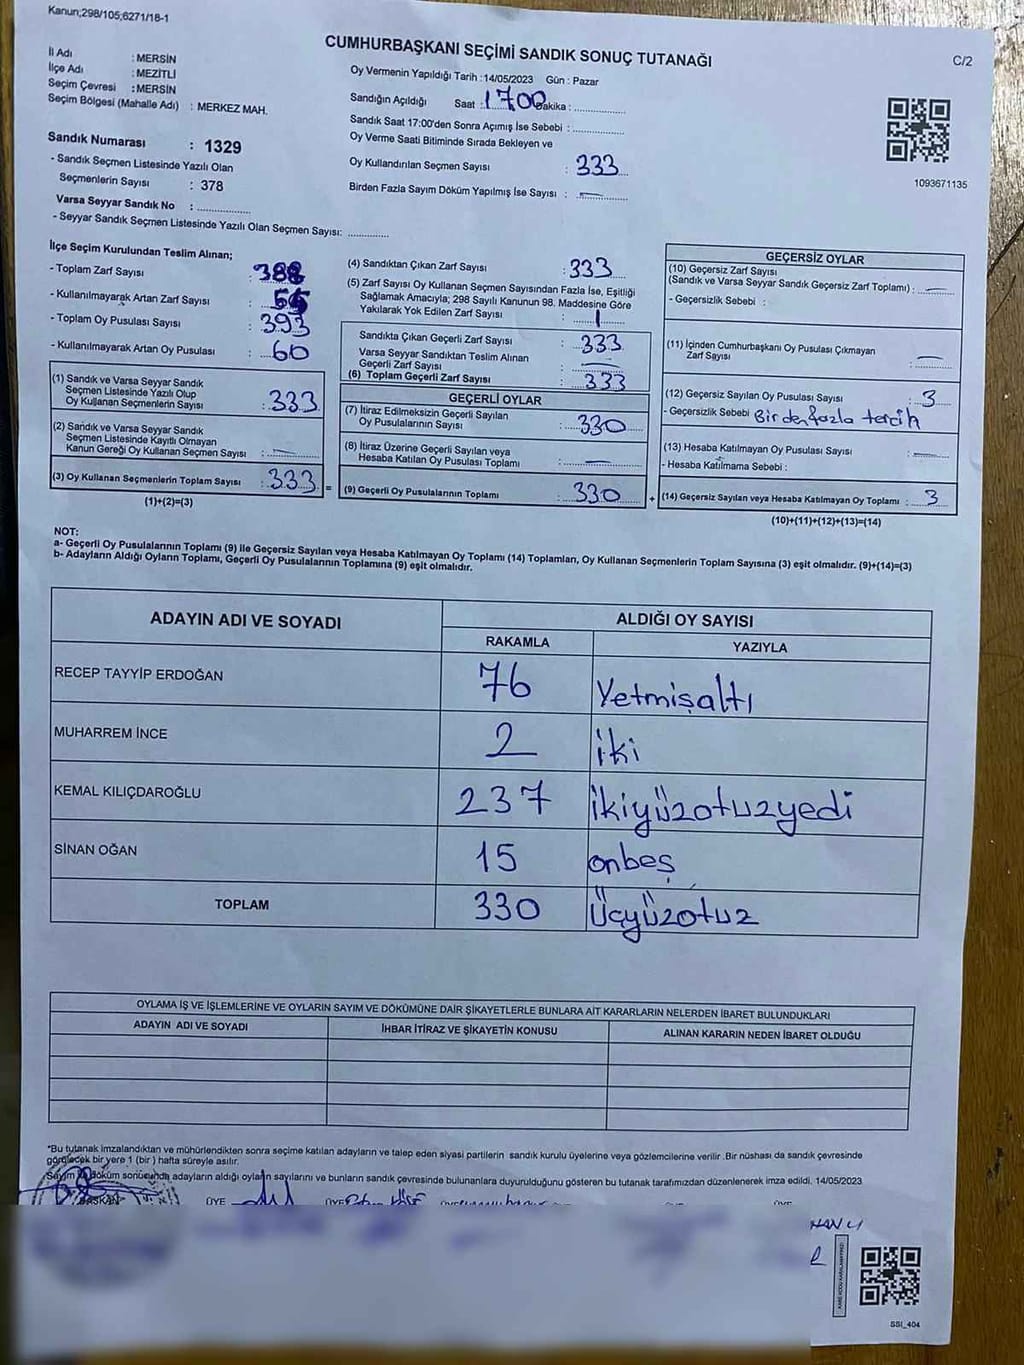 Kanun;298/105;6271/18-1
CUMHURBAŞKANI SEÇİMİ SANDIK SONUÇ TUTANAĞI
C/2
İl Adı : MERSİN
İlçe Adı : MEZİTLİ
Seçim Çevresi : MERSİN
Seçim Bölgesi (Mahalle Adı) : MERKEZ MAH.
Sandık Numarası : 1329
- Sandık Seçmen Listesinde Yazılı Olan
Seçmenlerin Sayısı : 378
Varsa Seyyar Sandık No : ..................
- Seyyar Sandık Seçmen Listesinde Yazılı Olan Seçmen Sayısı: ..............
Oy Vermenin Yapıldığı Tarih :14/05/2023 Gün : Pazar
Sandığın Açıldığı Saat : 17 00 Dakika : ..............
Sandık Saat 17:00'den Sonra Açımış İse Sebebi : ..............
Oy Verme Saati Bitiminde Sırada Bekleyen ve
Oy Kullandırılan Seçmen Sayısı : 333
Birden Fazla Sayım Döküm Yapılmış İse Sayısı : —
1093671135
İlçe Seçim Kurulundan Teslim Alınan;
- Toplam Zarf Sayısı : 388
- Kullanılmayarak Artan Zarf Sayısı :
- Toplam Oy Pusulası Sayısı : 393
- Kullanılmayarak Artan Oy Pusulası : 60
(1) Sandık ve Varsa Seyyar Sandık
Seçmen Listesinde Yazılı Olup
Oy Kullanan Seçmenlerin Sayısı : 333
(2) Sandık ve Varsa Seyyar Sandık
Seçmen Listesinde Kayıtlı Olmayan
Kanun Gereği Oy Kullanan Seçmen Sayısı : —
(3) Oy Kullanan Seçmenlerin Toplam Sayısı : 333
(1)+(2)=(3)
=
(4) Sandıktan Çıkan Zarf Sayısı : 333
(5) Zarf Sayısı Oy Kullanan Seçmen Sayısından Fazla İse, Eşitliği
Sağlamak Amacıyla; 298 Sayılı Kanunun 98. Maddesine Göre
Yakılarak Yok Edilen Zarf Sayısı :
Sandıkta Çıkan Geçerli Zarf Sayısı : 333
Varsa Seyyar Sandıktan Teslim Alınan
Geçerli Zarf Sayısı : —
(6) Toplam Geçerli Zarf Sayısı : 333
GEÇERLİ OYLAR
(7) İtiraz Edilmeksizin Geçerli Sayılan
Oy Pusulalarının Sayısı : 330
(8) İtiraz Üzerine Geçerli Sayılan veya
Hesaba Katılan Oy Pusulası Toplamı : —
(9) Geçerli Oy Pusulalarının Toplamı : 330
+
GEÇERSİZ OYLAR
(10) Geçersiz Zarf Sayısı
(Sandık ve Varsa Seyyar Sandık Geçersiz Zarf Toplamı) : —
- Geçersizlik Sebebi :
(11) İçinden Cumhurbaşkanı Oy Pusulası Çıkmayan
Zarf Sayısı : —
(12) Geçersiz Sayılan Oy Pusulası Sayısı : 3
- Geçersizlik Sebebi Birden fazla tercih
(13) Hesaba Katılmayan Oy Pusulası Sayısı : —
- Hesaba Katılmama Sebebi :
(14) Geçersiz Sayılan veya Hesaba Katılmayan Oy Toplamı : 3
(10)+(11)+(12)+(13)=(14)
NOT:
a- Geçerli Oy Pusulalarının Toplamı (9) ile Geçersiz Sayılan veya Hesaba Katılmayan Oy Toplamı (14) Toplamları, Oy Kullanan Seçmenlerin Toplam Sayısına (3) eşit olmalıdır. (9)+(14)=(3)
b- Adayların Aldığı Oyların Toplamı, Geçerli Oy Pusulalarının Toplamına (9) eşit olmalıdır.
ADAYIN ADI VE SOYADI ALDIĞI OY SAYISI
RAKAMLA YAZIYLA
RECEP TAYYİP ERDOĞAN 76 Yetmişaltı
MUHARREM İNCE 2 iki
KEMAL KILIÇDAROĞLU 237 ikiyüzotuzyedi
SİNAN OĞAN 15 onbeş
TOPLAM 330 Üçyüzotuz
OYLAMA İŞ VE İŞLEMLERİNE VE OYLARIN SAYIM VE DÖKÜMÜNE DAİR ŞİKAYETLERLE BUNLARA AİT KARARLARIN NELERDEN İBARET BULUNDUKLARI
ADAYIN ADI VE SOYADI İHBAR İTİRAZ VE ŞİKAYETİN KONUSU ALINAN KARARIN NEDEN İBARET OLDUĞU
*Bu tutanak imzalandıktan ve mühürlendikten sonra seçime katılan adayların ve talep eden siyasi partilerin sandık kurulu üyelerine veya gözlemcilerine verilir .Bir nüshası da sandık çevresinde
görülecek bir yere 1 (bir ) hafta süreyle asılır.
Sayım ve Döküm sonucunda adayların aldığı oyların sayılarını ve bunların sandık çevresinde bulunanlara duyurulduğunu gösteren bu tutanak tarafımızdan düzenlenerek imza edildi. 14/05/2023
BAŞKAN ÜYE ÜYE
SSI_404